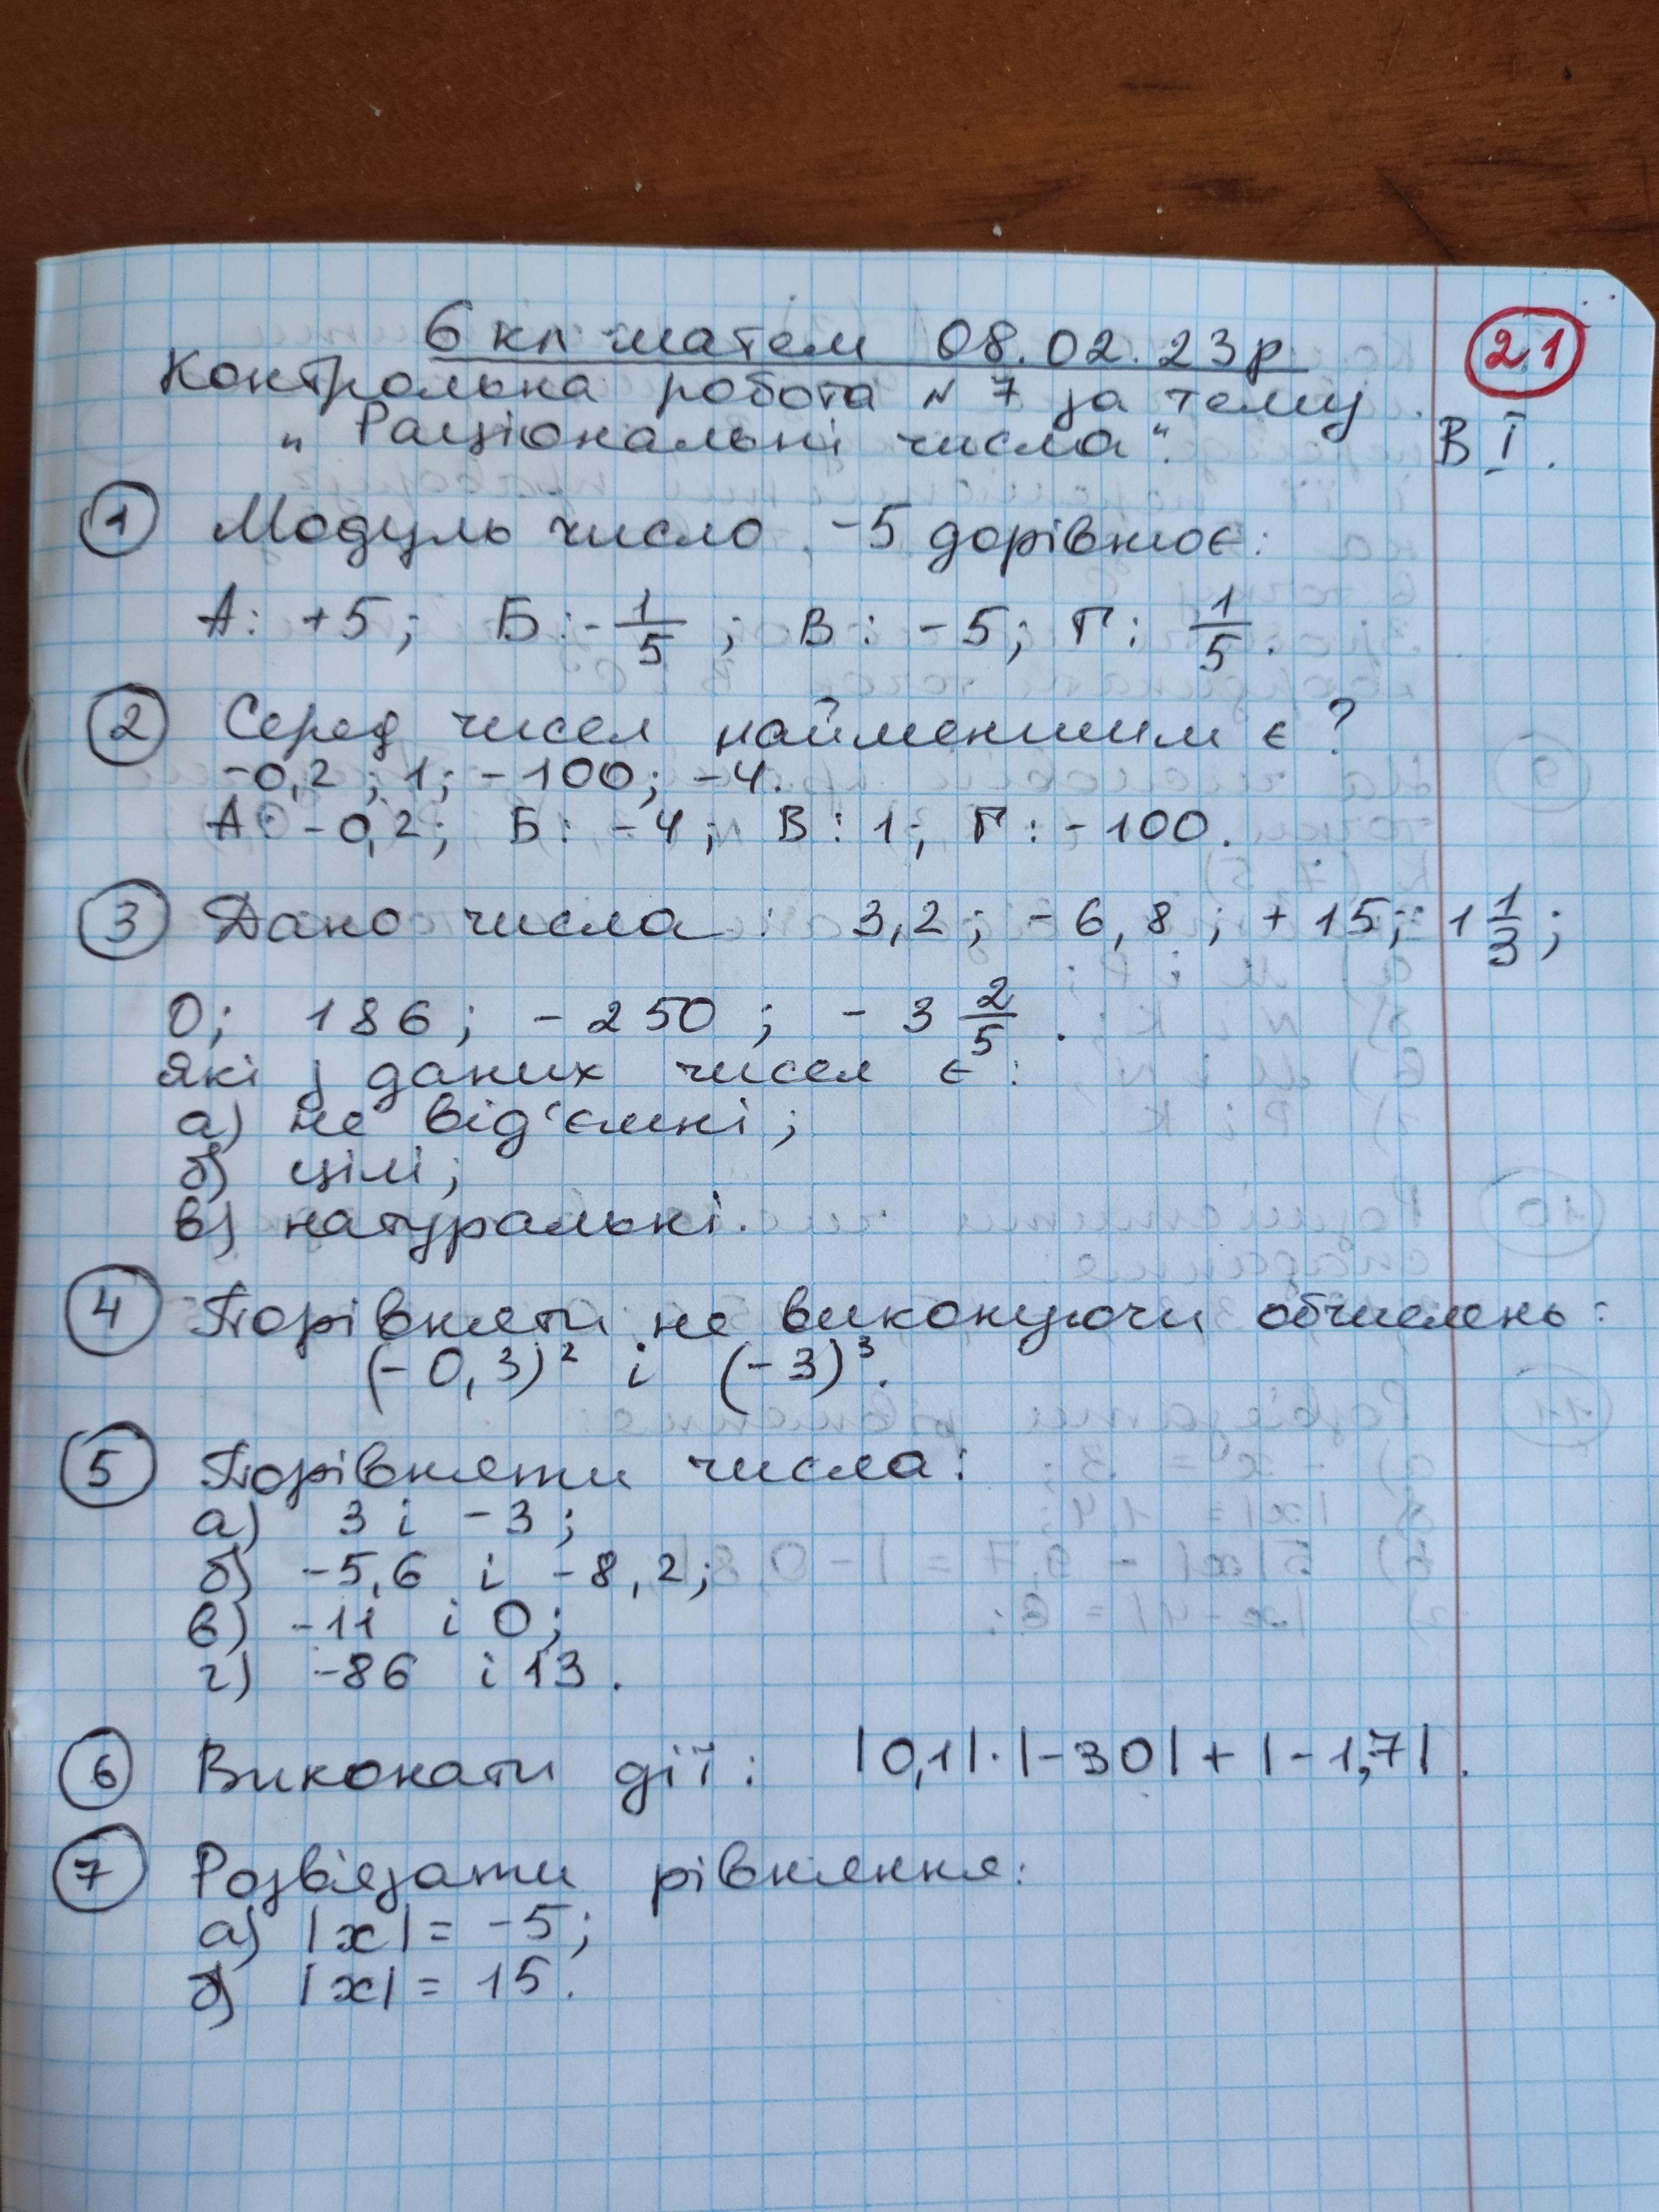 6 кл матем 08.02.23р
21
Контрольна робота № 7 за тему
„Раціональні числа“.
В I.
1 Модуль число -5 дорівнює:
А: +5; Б: -1/5; В: -5; Г: 1/5.
2 Серед чисел найменшим є ?
-0,2; 1; -100; -4.
А: -0,2; Б: -4; В: 1; Г: -100.
3 Дано числа: 3,2; -6,8; +15; 1 1/3;
0; 186; -250; -3 2/5.
Які з даних чисел є:
а) не від'ємні;
б) цілі;
в) натуральні.
4 Порівняти не виконуючи обчислень:
(-0,3)² і (-3)³.
5 Порівняти числа:
а) 3 і -3;
б) -5,6 і -8,2;
в) -11 і 0;
г) -86 і 13.
6 Виконати дії: |0,1|·|-30|+|-1,7|.
7 Розв'язати рівняння:
а) |x| = -5;
б) |x| = 15.